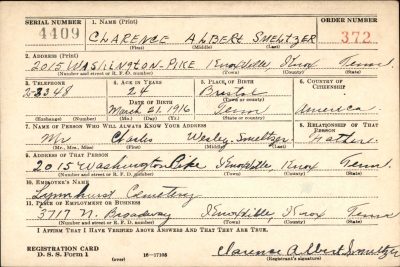 SERIAL NUMBER 1. NAME (Print) ORDER NUMBER
4409 CLARENCE ALBERT SMELTZER 372
(First) (Middle) (Last)
2. ADDRESS (Print)
2015 WASHINGTON-PIKE Knoxville, Knox Tenn.
(Number and street or R. F. D. number) (Town) (County) (State)
3. TELEPHONE 4. AGE IN YEARS 5. PLACE OF BIRTH 6. COUNTRY OF CITIZENSHIP
2-2348 24 Bristol
DATE OF BIRTH
March 21, 1916 Tenn America
(Exchange) (Number) (Mo.) (Day) (Yr.) (State or country)
7. NAME OF PERSON WHO WILL ALWAYS KNOW YOUR ADDRESS 8. RELATIONSHIP OF THAT PERSON
Mr Charles Wesley Smeltzer Father
(Mr., Mrs., Miss) (First) (Middle) (Last)
9. ADDRESS OF THAT PERSON
2015 Washington Pike Knoxville, Knox Tenn.
(Number and street or R. F. D. number) (Town) (County) (State)
10. EMPLOYER'S NAME
Lynnhurst Cemetery
11. PLACE OF EMPLOYMENT OR BUSINESS
3717 N. Broadway Knoxville, Knox Tenn
(Number and street or R. F. D. number) (Town) (County) (State)
I AFFIRM THAT I HAVE VERIFIED ABOVE ANSWERS AND THAT THEY ARE TRUE.
REGISTRATION CARD
D. S. S. Form 1 16-17105 Clarence Albert Smeltzer
(over) (Registrant's signature)